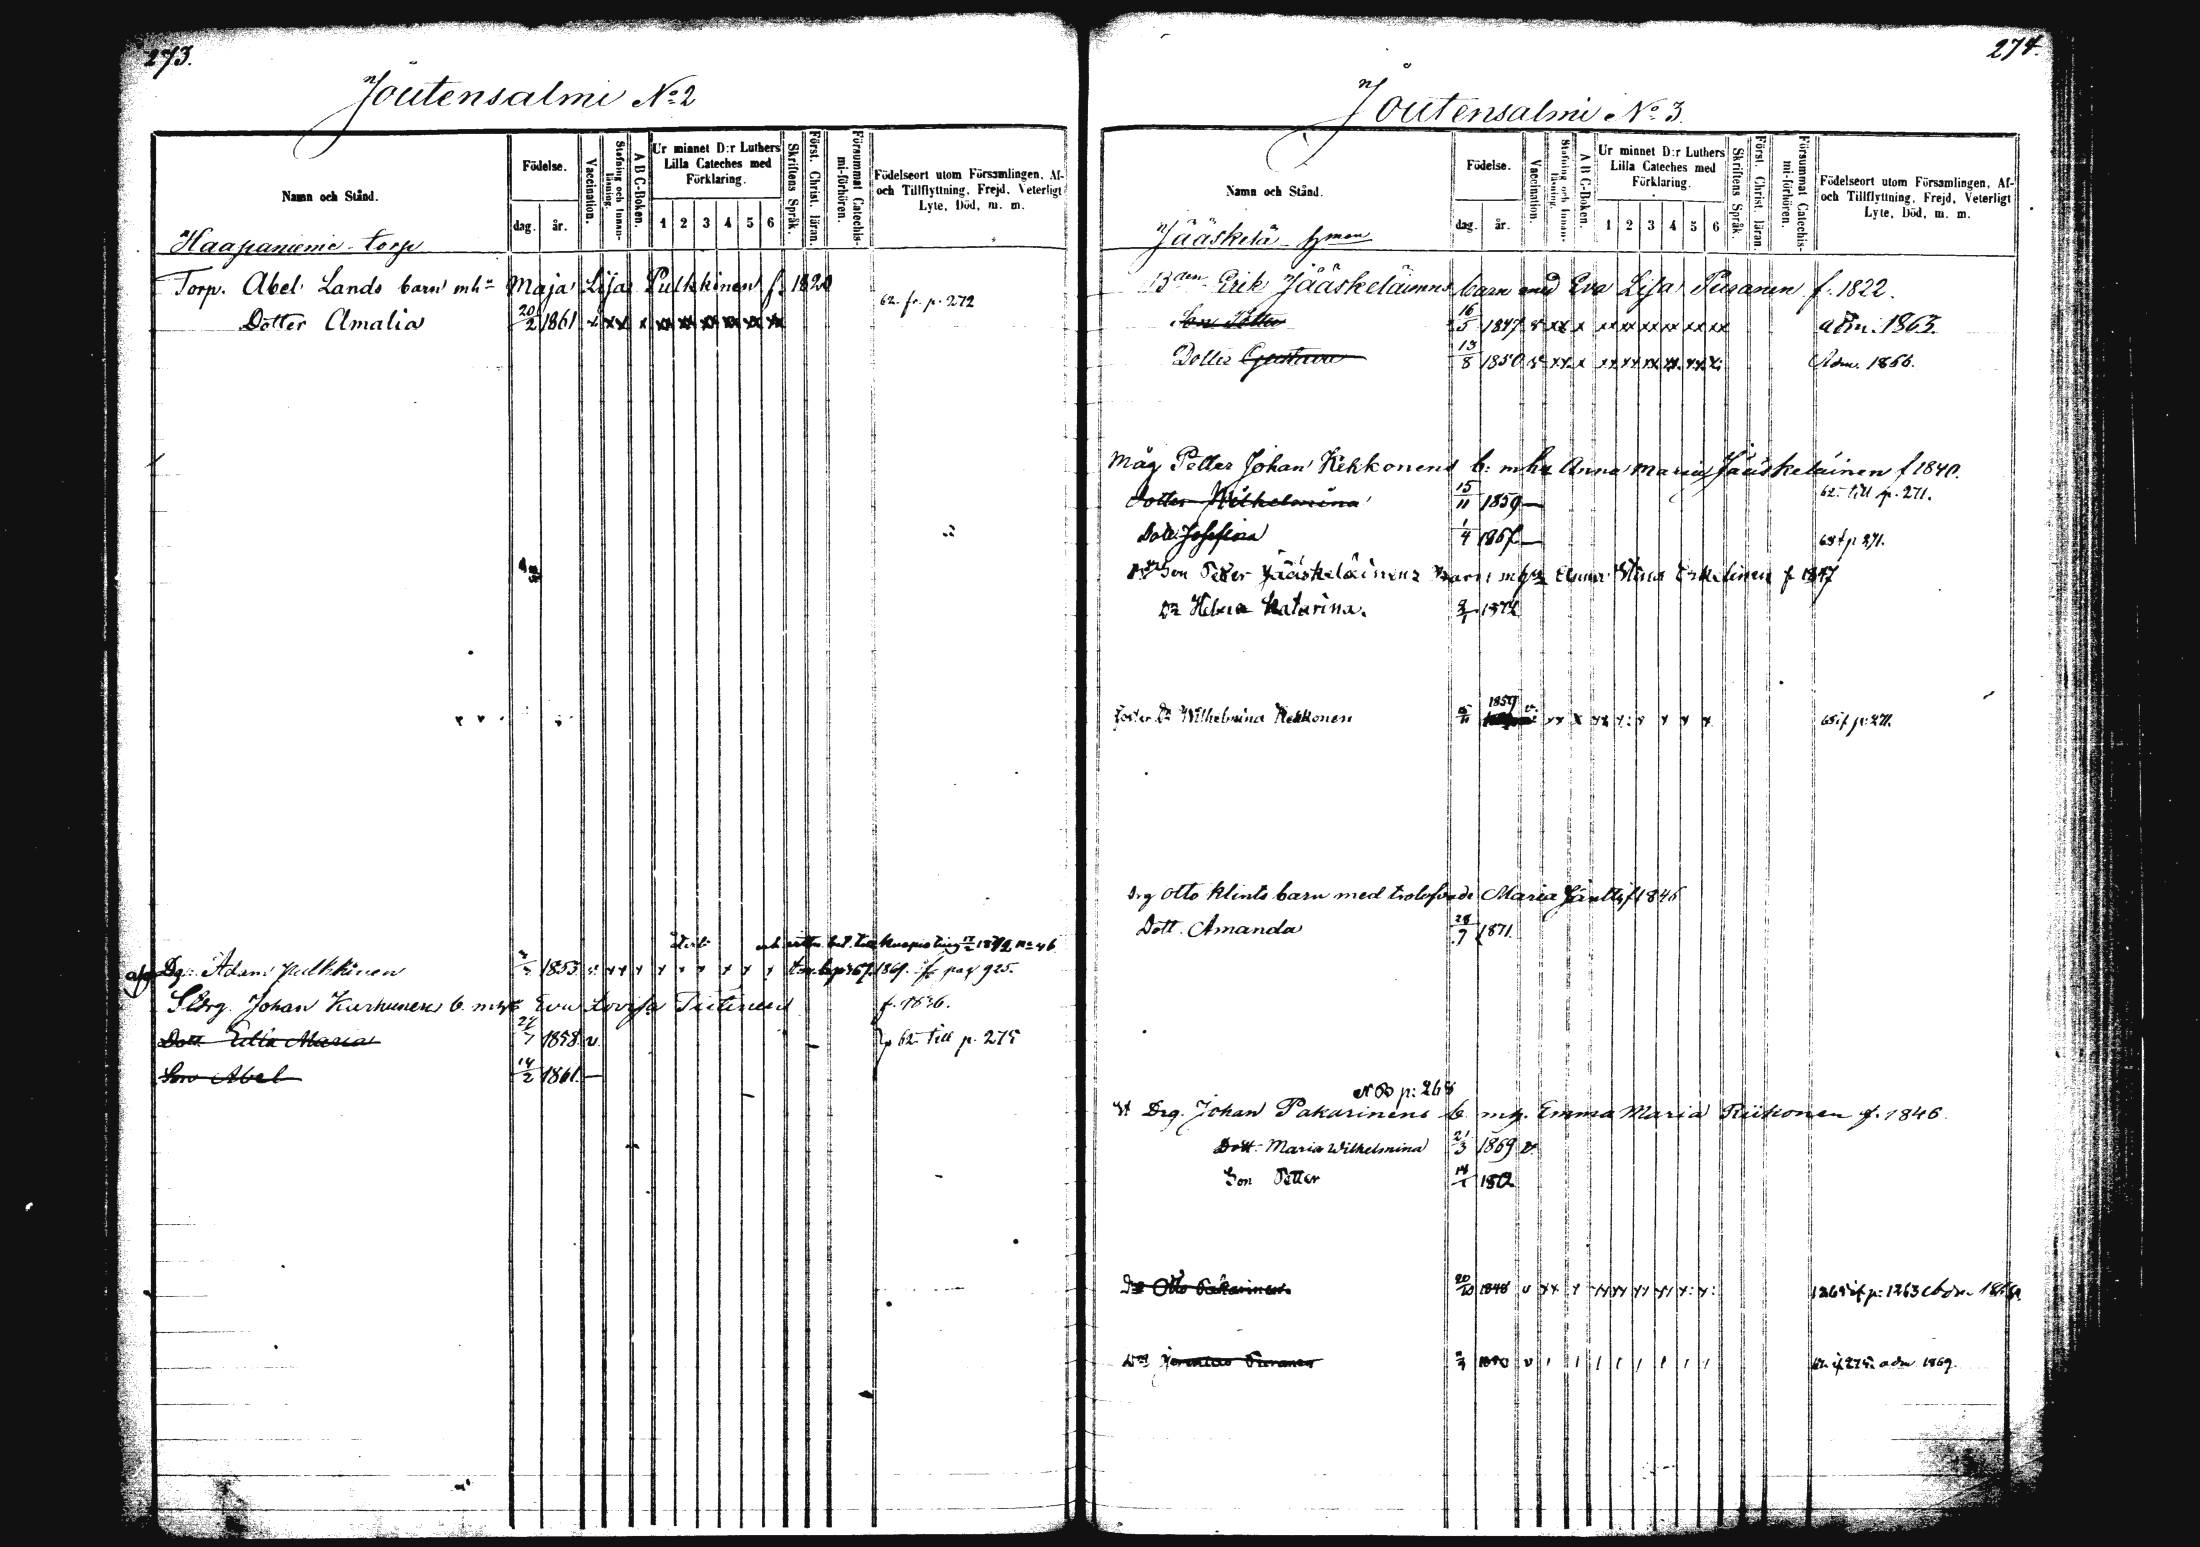 273.
Joutensalmi No 2
Namn och Stånd.
Födelse.
dag.
år.
Vaccination.
Stafning och Innan-läsning.
A B C-Boken.
Ur minnet D:r Luthers
Lilla Cateches med
Förklaring.
1 2 3 4 5 6
Skriftens Språk.
Först. Christ. läran.
Försummat Catechis-
mi-förhören.
Födelseort utom Församlingen, Af-
och Tillflyttning, Frejd, Veterligt
Lyte, Död, m. m.
Haapaniemi torp
Torp. Abel Lands barn mh Maja Lisa Pulkkinen f. 1820
62. fr. p. 272
Dotter Amalia 20/2 1861
Dg. Adam Pulkkinen 1853 1869. pag 925.
Drg. Johan Kurhunens b. mh Eva Lovisa Tietinen f. 1836.
Dott. Ulla Maria 1858 v 62 till p. 275
Son Abel 14/2 1861 —
274.
Joutensalmi No 3.
Namn och Stånd.
Födelse.
dag.
år.
Vaccination.
Stafning och Innan-läsning.
A B C-Boken.
Ur minnet D:r Luthers
Lilla Cateches med
Förklaring.
1 2 3 4 5 6
Skriftens Språk.
Först. Christ. läran.
Försummat Catechis-
mi-förhören.
Födelseort utom Församlingen, Af-
och Tillflyttning, Frejd, Veterligt
Lyte, Död, m. m.
Jääskelä hman
Bden Erik Jääskeläinens barn med Eva Lisa Piiranen f. 1822.
Son Petter 16/5 1847 adm. 1863.
Dotter Gustava 13/8 1850 Adm. 1866.
Måg Petter Johan Kekkonens b. mh Anna Maria Jääskeläinen f 1840.
Dotter Wilhelmina 15/11 1859 — 62 till p. 271.
Dott. Josefina 1/4 1867 — p 271.
Son Petter Jääskeläinens barn mh Anna Stina f 1847
Dr Helena Katarina.
Foster Dr Wilhelmina Kekkonen 15/11 1859 p: 271.
Drg Otto Klints barn med trolofvade Maria Jäntti f 1846
Dott. Amanda 28/7 1871.
NB p: 268
Drg. Johan Pakarinens b. mh. Emma Maria Riikonen f. 1846.
Dott. Maria Wilhelmina 21/3 1869 v.
Son Petter 1872
Dr Otto Pakarinen 20/10 1848 v
Piiranen v adm 1869.